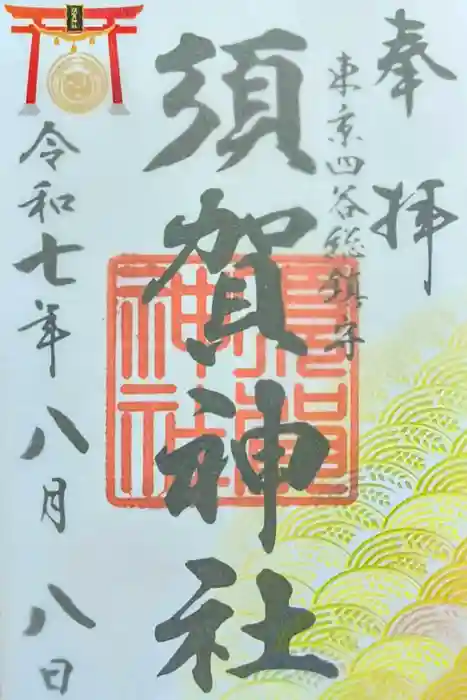 奉拝
東京四谷総鎮守
須賀神社
須賀神社
令和七年八月八日
須賀神社